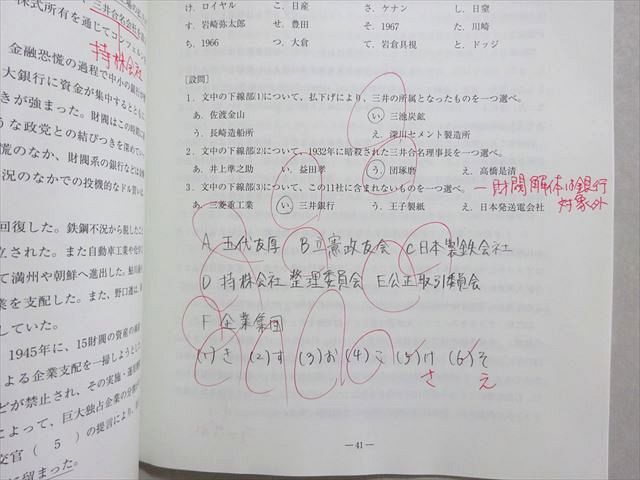 株式所有を通じてコンツェルン
三井合名会社を
持株会社
金融恐慌の過程で中小の銀行
大銀行に資金が集中するととも
きが強まった。財閥はこの時期に
うな政党との結びつきを深めてい
慌のなか、財閥系の銀行などは金輸
況のなかでの投機的なドル買い
回復した。鉄鋼不況から脱したこ
立された。また自動車工業や化学工
て満州や朝鮮へ進出した。鮎川義
業を支配した。また、野口遵は、
していた。
1945年に、15財閥の資産の凍結
よる企業支配を一掃しようとし
どが禁止され、その実施・運用
によって、巨大独占企業の分割
交官（ 5 ）の提言により、
に留まった。
け．ロイヤル こ．日産 さ．ケナン し．日窒
す．岩崎弥太郎 せ．豊田 そ．1967 た．川崎
ち．1966 つ．大倉 て．岩倉具視 と．ドッジ
[設問]
1．文中の下線部(1)について、払下げにより、三井の所属となったものを一つ選べ。
あ．佐渡金山 い．三池炭鉱
う．長崎造船所 え．深川セメント製造所
2．文中の下線部(2)について、1932年に暗殺された三井合名理事長を一つ選べ。
あ．井上準之助 い．益田孝 う．団琢磨 え．高橋是清
3．文中の下線部(3)について、この11社に含まれないものを一つ選べ。
あ．三菱重工業 い．三井銀行 う．王子製紙 え．日本発送電会社
財閥解体は銀行
対象外
A 五代友厚 B 立憲政友会 C 日本製鉄会社
D 持株会社整理委員会 E 公正取引委員会
F 企業集団
(1)き (2)す (3)お (4)こ (5)け (6)そ
さ え
―41―